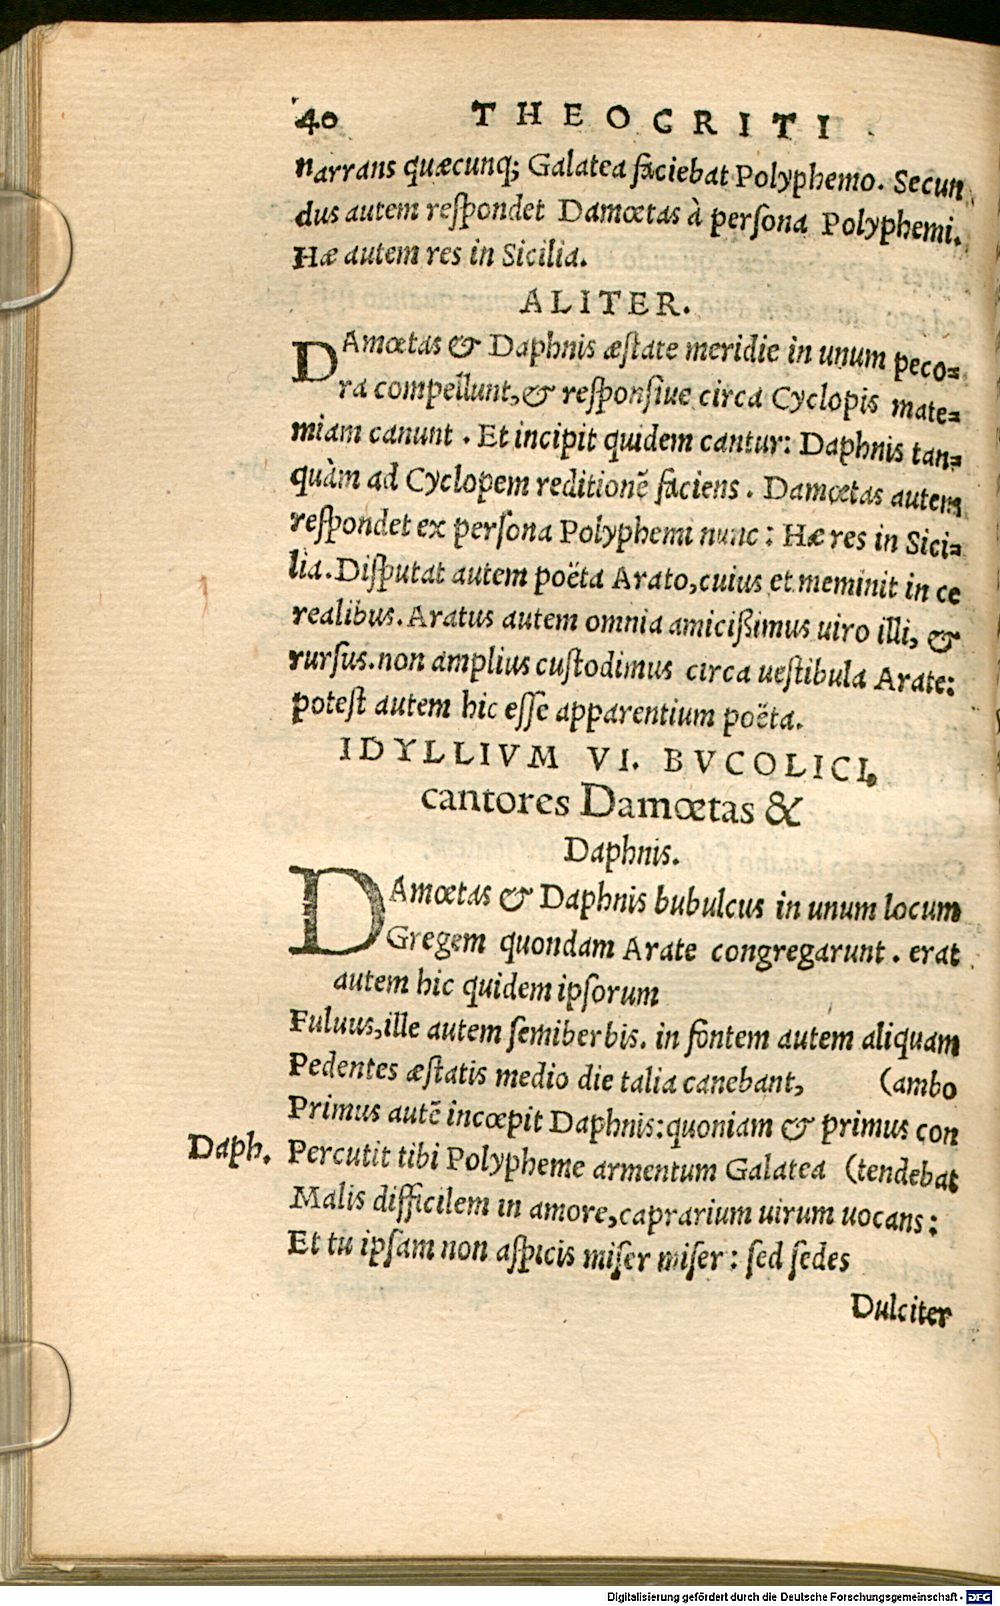 40 THEOCRITI
narrans quæcunq; Galatea faciebat Polyphemo. Secun
dus autem respondet Damœtas à persona Polyphemi.
Hæ autem res in Sicilia.
ALITER.
DAmœtas & Daphnis æstate meridie in unum peco=
ra compellunt, & responsiue circa Cyclopis mate=
miam canunt. Et incipit quidem cantur: Daphnis tan=
quàm ad Cyclopem reditionẽ faciens. Damœtas autem
respondet ex persona Polyphemi nunc: Hæ res in Sici=
lia. Disputat autem poëta Arato, cuius et meminit in ce
realibus. Aratus autem omnia amicißimus uiro illi, &
rursus. non amplius custodimus circa uestibula Arate:
potest autem hic esse apparentium poëta.
IDYLLIVM VI. BVCOLICI,
cantores Damœtas &
Daphnis.
DAmœtas & Daphnis bubulcus in unum locum
Gregem quondam Arate congregarunt. erat
autem hic quidem ipsorum
Fuluus, ille autem semiberbis. in fontem autem aliquam
Pedentes æstatis medio die talia canebant, (ambo
Primus autẽ incœpit Daphnis: quoniam & primus con
Daph. Percutit tibi Polypheme armentum Galatea (tendebat
Malis difficilem in amore, caprarium uirum uocans:
Et tu ipsam non aspicis miser miser: sed sedes
Dulciter
Digitalisierung gefördert durch die Deutsche Forschungsgemeinschaft - DFG